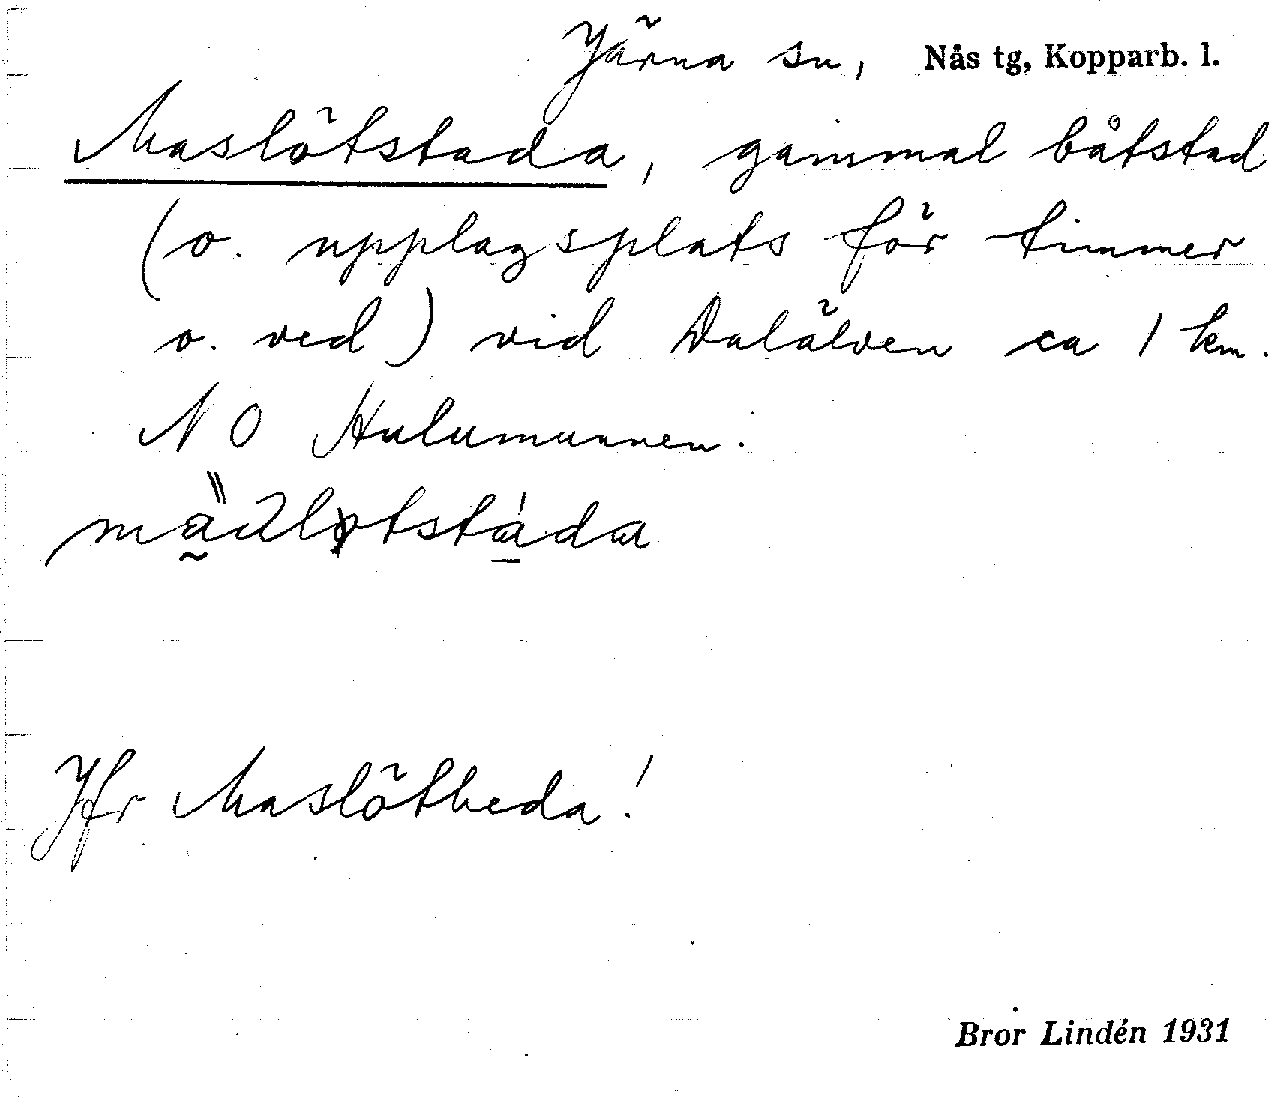 Järna sn, Nås tg, Kopparb. l.
Maslötstada, gammal båtstad
(o. upplagsplats för timmer
o. ved) vid Dalälven ca 1 km.
NO Hulumunnen.
Jfr Maslötheda!
Bror Lindén 1931